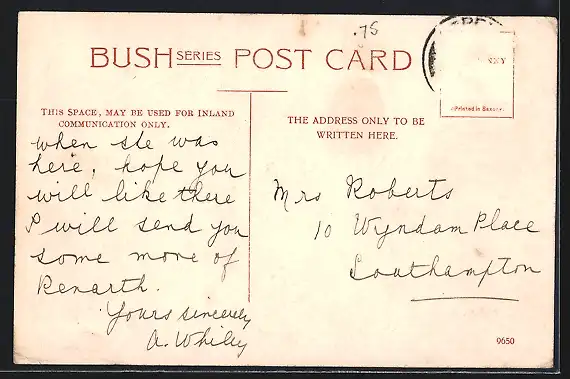 .75
BUSH SERIES POST CARD
THIS SPACE, MAY BE USED FOR INLAND
COMMUNICATION ONLY.
THE ADDRESS ONLY TO BE
WRITTEN HERE.
Printed in Saxony.
when she was
here, hope you
will like there
I will send you
some more of
Penarth.
Yours sincerely
A. Whiley
Mrs Roberts
10 Wyndam Place
Southampton
9650